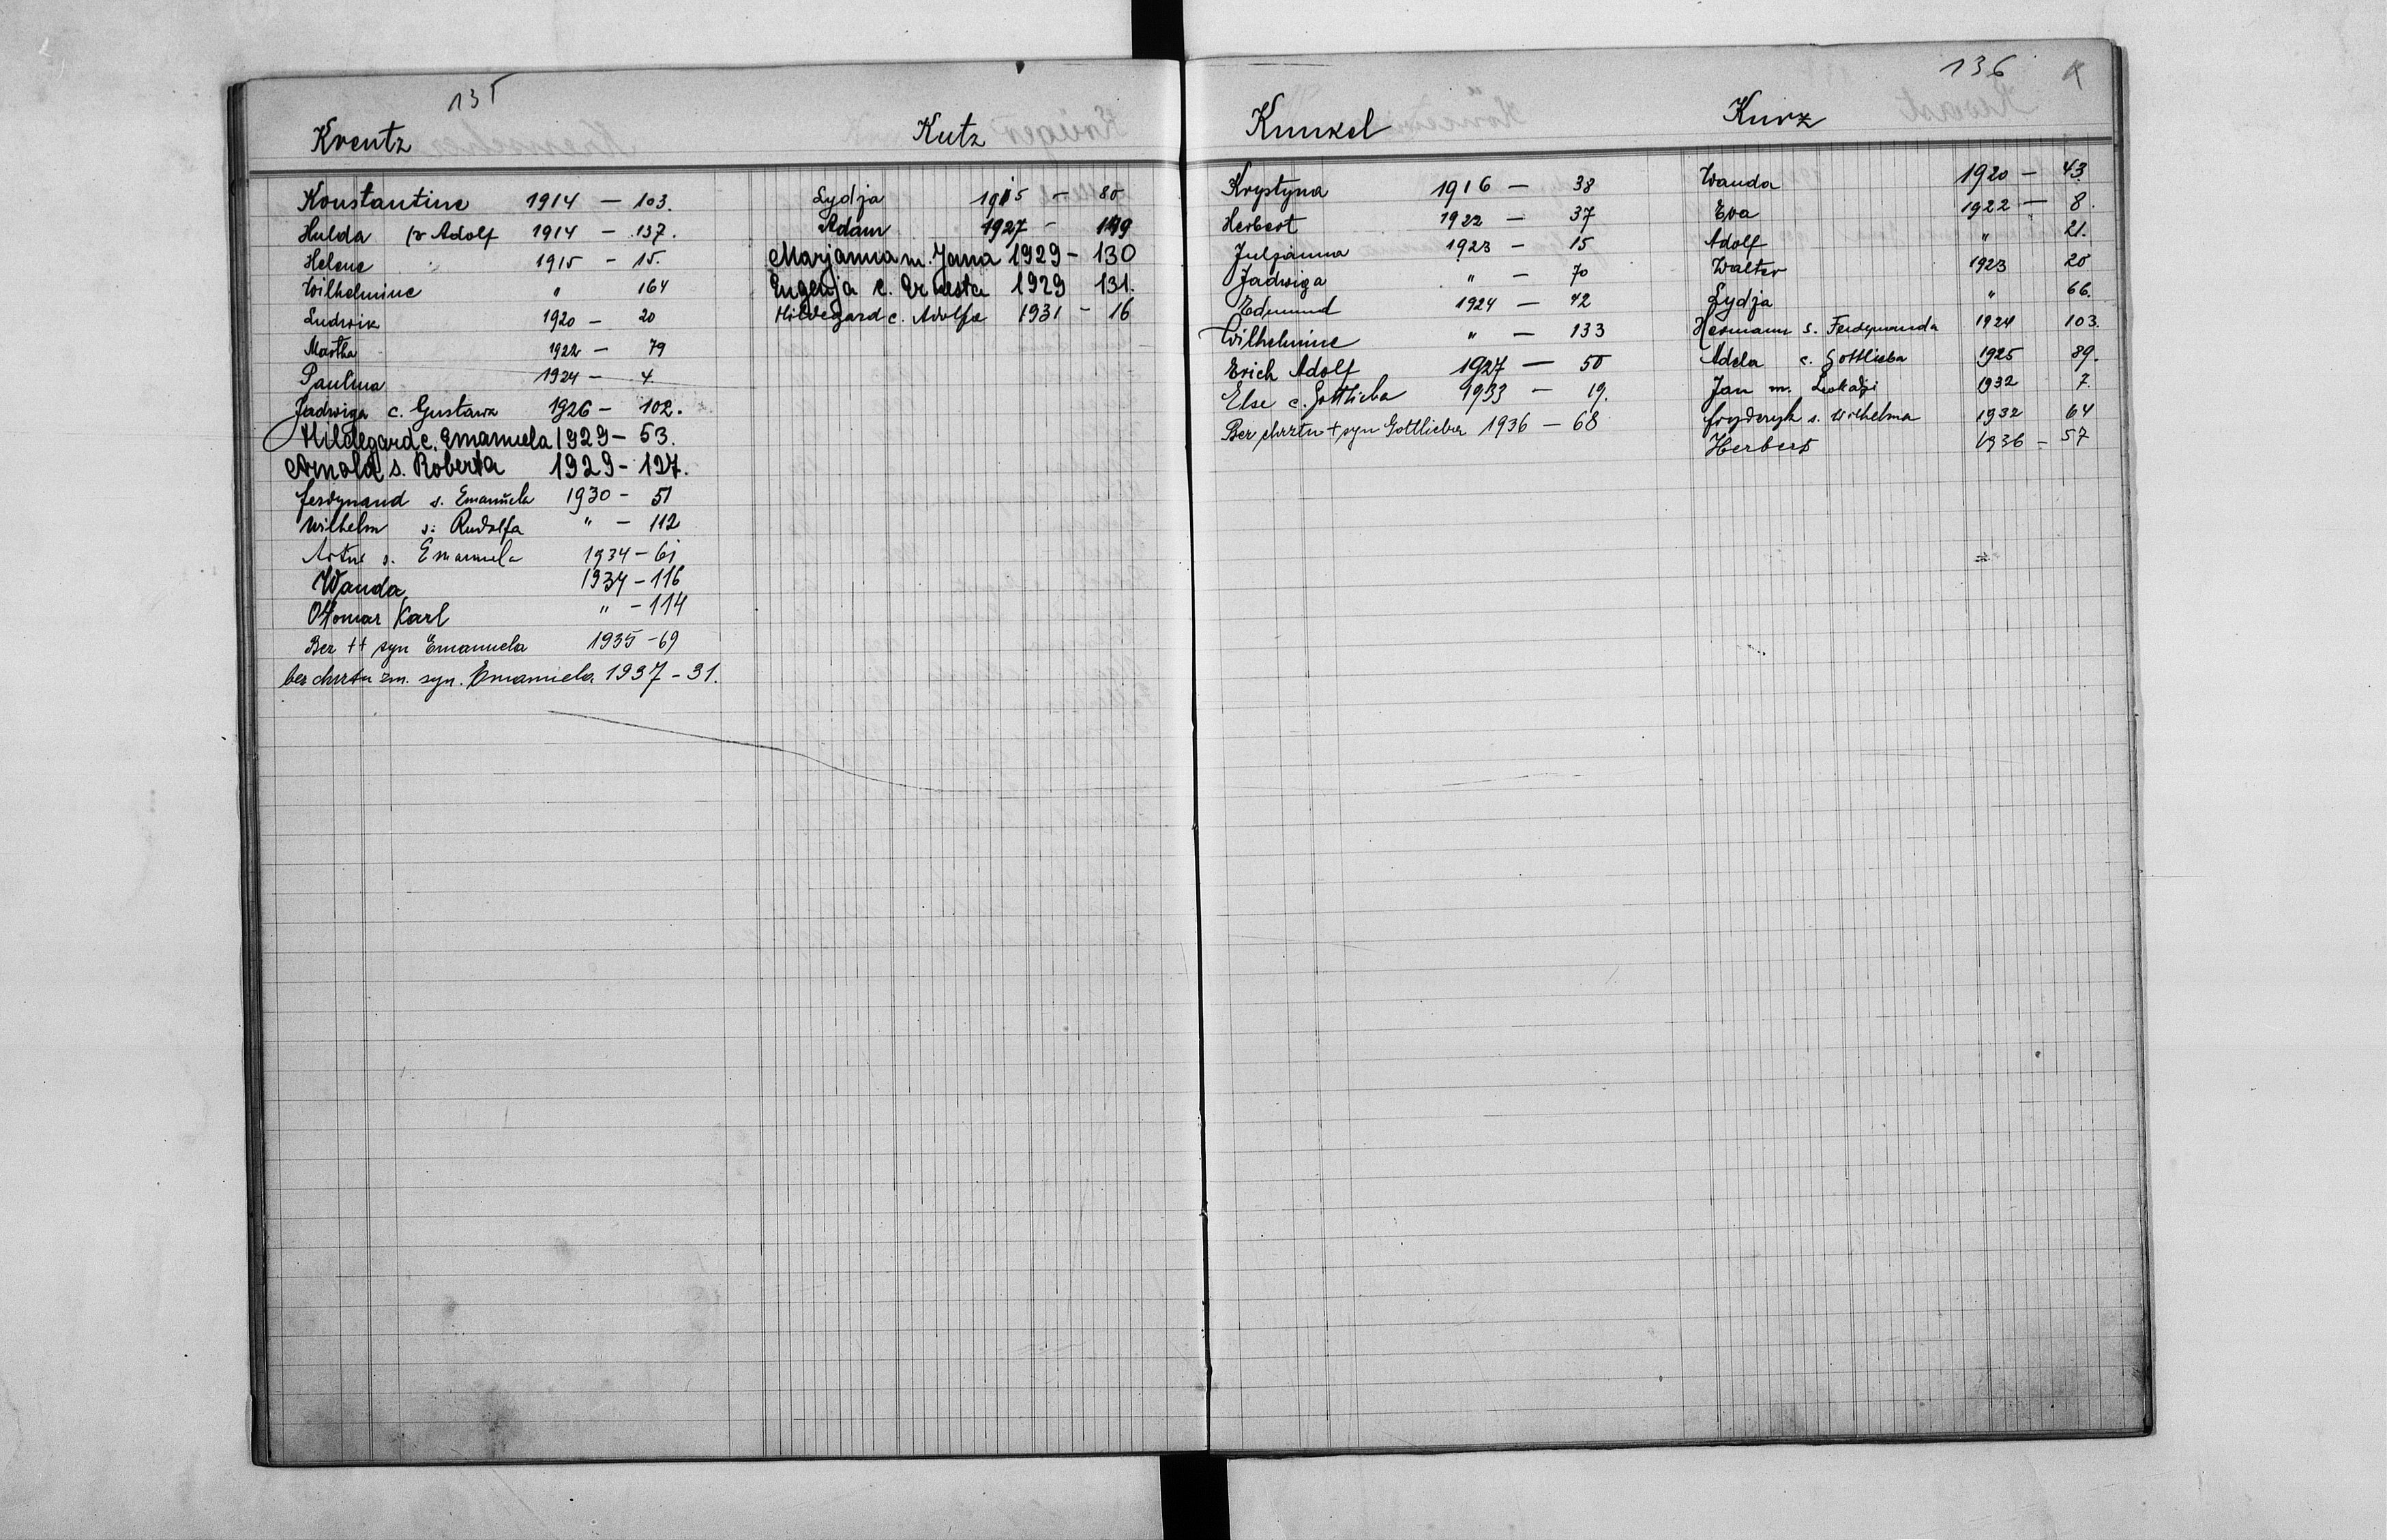 135
Kreutz
Konstantine 1914 — 103.
Hulda Adolf 1914 — 137.
Helene 1915 — 15.
Wilhelmine " 164
Ludwik 1920 — 20
Martha 1922 — 79
Paulina 1924 — 4
Jadwiga c. Gustawa 1926 — 102.
Hildegard c. Emanuela 1929 — 53.
Arnold s. Roberta 1929 - 127.
Ferdynand s. Emanuela 1930 - 51
Wilhelm s. Rudolfa " — 112
Artur s. Emanuela 1934 — 61
Wanda 1934 - 116
Ottomar Karl " - 114
Bez ++ syn Emanuela 1935 - 69
bez chrztu zm. syn. Emanuela 1937 - 31.
Kutz
Lydja 1915 — 80
Adam 1927 - 149
Marjanna m. Jana 1929 - 130
Eugenja c. Ernesta 1929 131.
Hildegard c. Adolfa 1931 - 16
136 K
Kunkel
Krystyna 1916 — 38
Herbert 1922 — 37
Juljanna 1923 - 15
Jadwiga " — 70
Edmund 1924 — 42
Wilhelmine " — 133
Erich Adolf 1927 — 50
Else c. Gottlieba 1933 — 19.
Bez chrztu + syn Gottlieba 1936 — 68
Kurz
Wanda 1920 — 43.
Eva 1922 — 8.
Adolf " 21.
Walter 1923 20
Lydja " 66.
Hermann s. Ferdynanda 1924 103.
Adela c. Gottlieba 1925 89.
Jan m. Leokadji 1932 7.
Fryderyk s. Wilhelma 1932 64
Herbert 1936 - 57